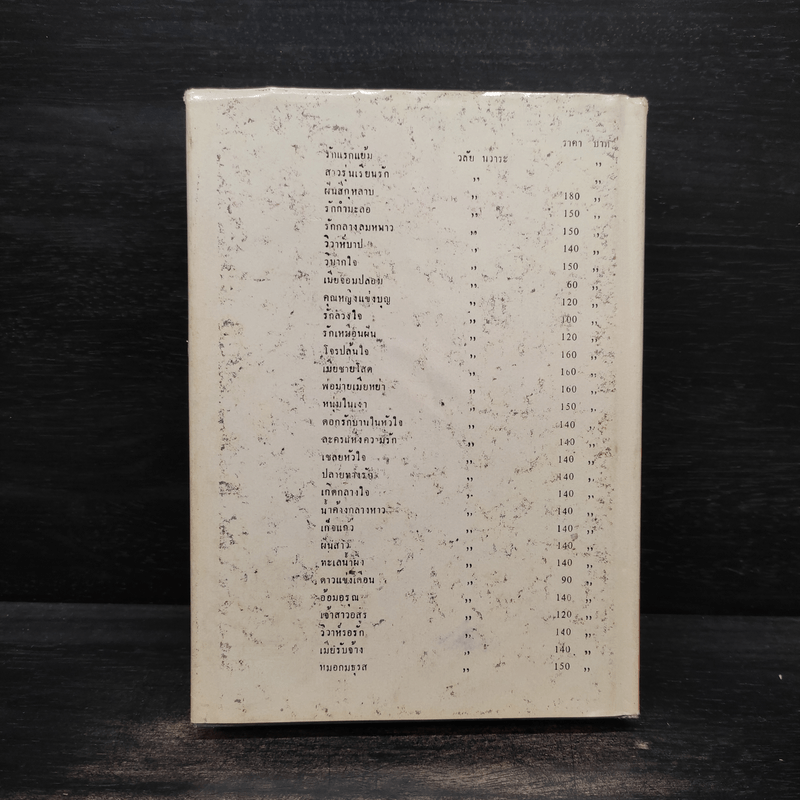 ราคา บาท
รักแรกแย้ม วลัย นวาระ ,,
สาวรุ่นเรียนรัก ,, ,,
ผืนสีกุหลาบ ,, 180 ,,
รักกำมะลอ ,, 150 ,,
รักกลางลมหนาว ,, 150 ,,
วิวาห์บาป ,, 140 ,,
วิบากใจ ,, 150 ,,
เมียจอมปลอม ,, 60 ,,
คุณหญิงแข่งบุญ ,, 120 ,,
รักลวงใจ ,, 100 ,,
รักเหมือนฝัน ,, 120 ,,
โจรปล้นใจ ,, 160 ,,
เมียชายโสด ,, 160 ,,
พ่อม่ายเมียหย่า ,, 160 ,,
หนุ่มในเงา ,, 150 ,,
ดอกรักบานในหัวใจ ,, 140 ,,
ละครแห่งความรัก ,, 140 ,,
เชลยหัวใจ ,, 140 ,,
ปลายทางรัก ,, 140 ,,
เกิดกลางใจ ,, 140 ,,
น้ำค้างกลางหาว ,, 140 ,,
เก็จแก้ว ,, 140 ,,
ผืนสาว ,, 140 ,,
ทะเลน้ำผึ้ง ,, 140 ,,
ดาวแข่งเดือน ,, 90 ,,
อ้อมอรุณ ,, 140 ,,
เจ้าสาวอสูร ,, 120 ,,
วิวาห์รอรัก ,, 140 ,,
เมียรับจ้าง ,, 140 ,,
หมอกมธุรส ,, 150 ,,